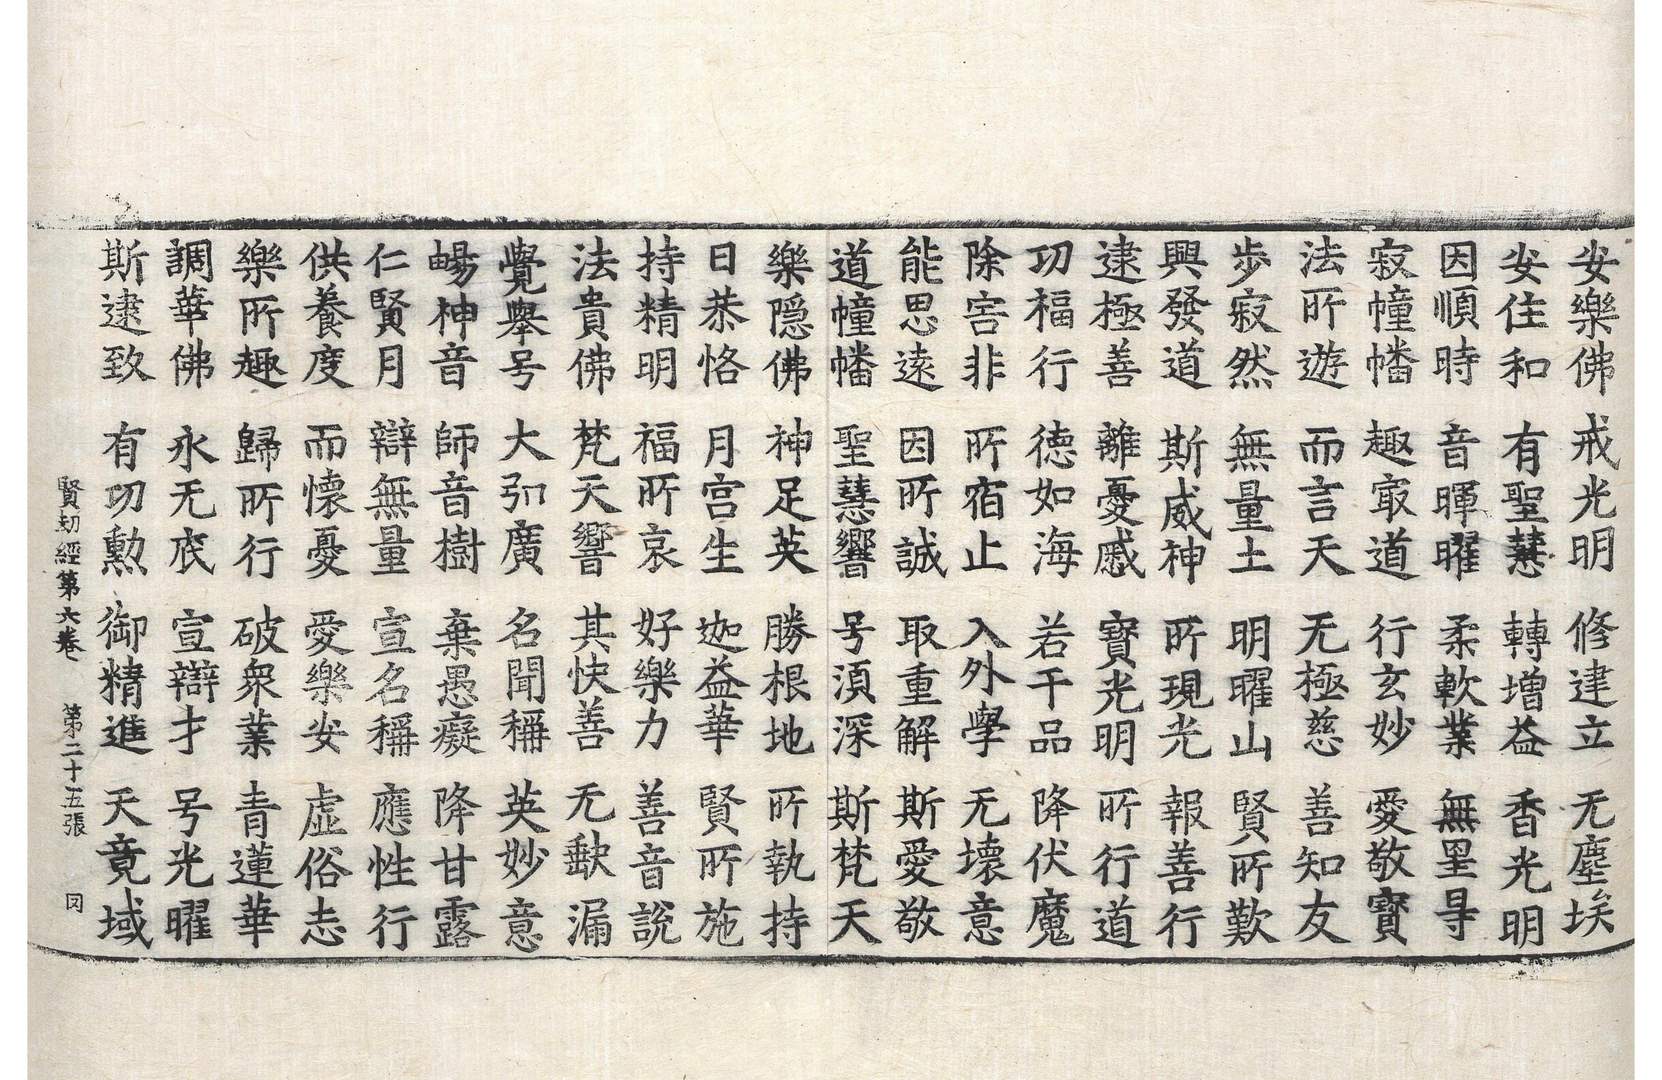 安樂佛 戒光明 修建立 无塵埃
安住和 有聖慧 轉增益 香光明
因順時 音暉曜 柔軟業 無里㝵
寂幢幡 趣㝡道 行玄妙 愛敬寳
法所遊 而言天 无極慈 善知友
步寂然 無量土 明曜山 賢所歎
興發道 斯威神 所現光 報善行
逮極善 離憂慼 寳光明 所行道
功福行 德如海 若干品 降伏魔
除害非 所宿止 入外學 无壞意
能思遠 因所誠 取重解 斯愛敬
道幢幡 聖慧響 号須深 斯梵天
樂隱佛 神足英 勝根地 所執持
日恭恪 月宮生 迦益華 賢所施
持精明 福所哀 好樂力 善音說
法貴佛 梵天響 其快善 无缺漏
覺舉号 大弘廣 名聞稱 英妙意
暢神音 師音樹 棄愚癡 降甘露
仁賢月 辯無量 宣名稱 應性行
供養度 而懷憂 愛樂安 虛俗志
樂所趣 歸所行 破衆業 青蓮華
調華佛 永无底 宣辯才 号光曜
斯逮致 有功勳 御精進 天竟域
賢劫經第六卷 第二十五張